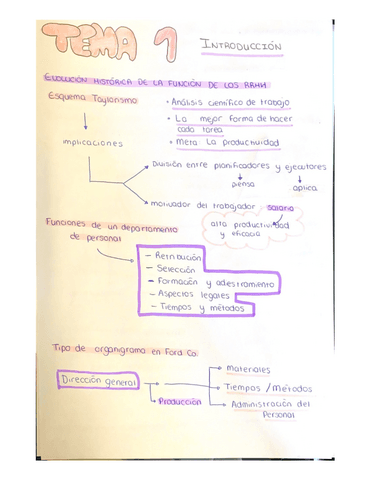 TEMA 1
INTRODUCCIÓN
EVOLUCIÓN HISTÓRICA DE LA FUNCIÓN DE LOS RRHH
Esquema Taylorismo
• Análisis científico de trabajo
• La mejor forma de hacer
cada tarea
• Meta La productividad
implicaciones
División entre planificadores y ejecutores
piensa
aplica
motivador del trabajador salario
alta productividad
y eficacia
Funciones de un departamento
de personal
- Retribución
- Selección
- Formación y adestramiento
- Aspectos legales
- Tiempos y métodos
Tipo de organigrama en Ford Co.
Dirección general
Producción
Materiales
Tiempos / Métodos
Administración del
Personal